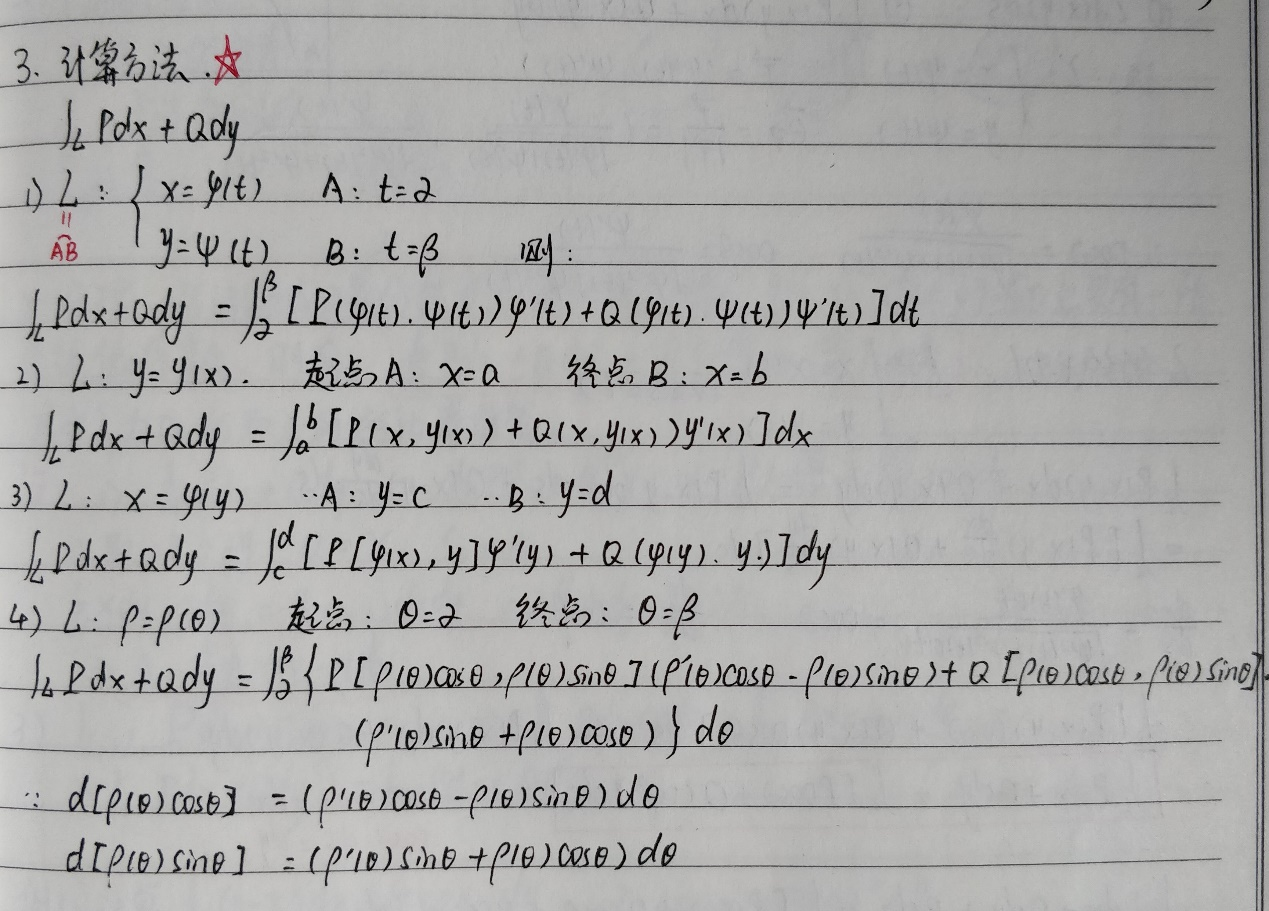 3. 计算方法. ☆
∫_L Pdx + Qdy
1) L : { x = φ(t)    A: t=α
‖
AB    y = ψ(t)    B: t=β    则:
∫_L Pdx+Qdy = ∫_α^β [P(φ(t). ψ(t))φ'(t) + Q(φ(t). ψ(t))ψ'(t)]dt
2) L: y= y(x).    起点A: x=a    终点B: x=b
∫_L Pdx + Qdy = ∫_a^b [P(x, y(x)) + Q(x, y(x))y'(x)]dx
3) L: x = φ(y)    ··A: y=c    ··B: y=d
∫_L Pdx+Qdy = ∫_c^d [P[φ(x), y]φ'(y) + Q(φ(y). y.)]dy
4) L: ρ=ρ(θ)    起点: θ=α    终点: θ=β
∫_L Pdx+Qdy = ∫_α^β {P[ρ(θ)cosθ, ρ(θ)sinθ](ρ'(θ)cosθ - ρ(θ)sinθ) + Q[ρ(θ)cosθ, ρ(θ)sinθ]·
(ρ'(θ)sinθ + ρ(θ)cosθ)}dθ
∵ d[ρ(θ)cosθ] = (ρ'(θ)cosθ - ρ(θ)sinθ)dθ
d[ρ(θ)sinθ] = (ρ'(θ)sinθ + ρ(θ)cosθ)dθ